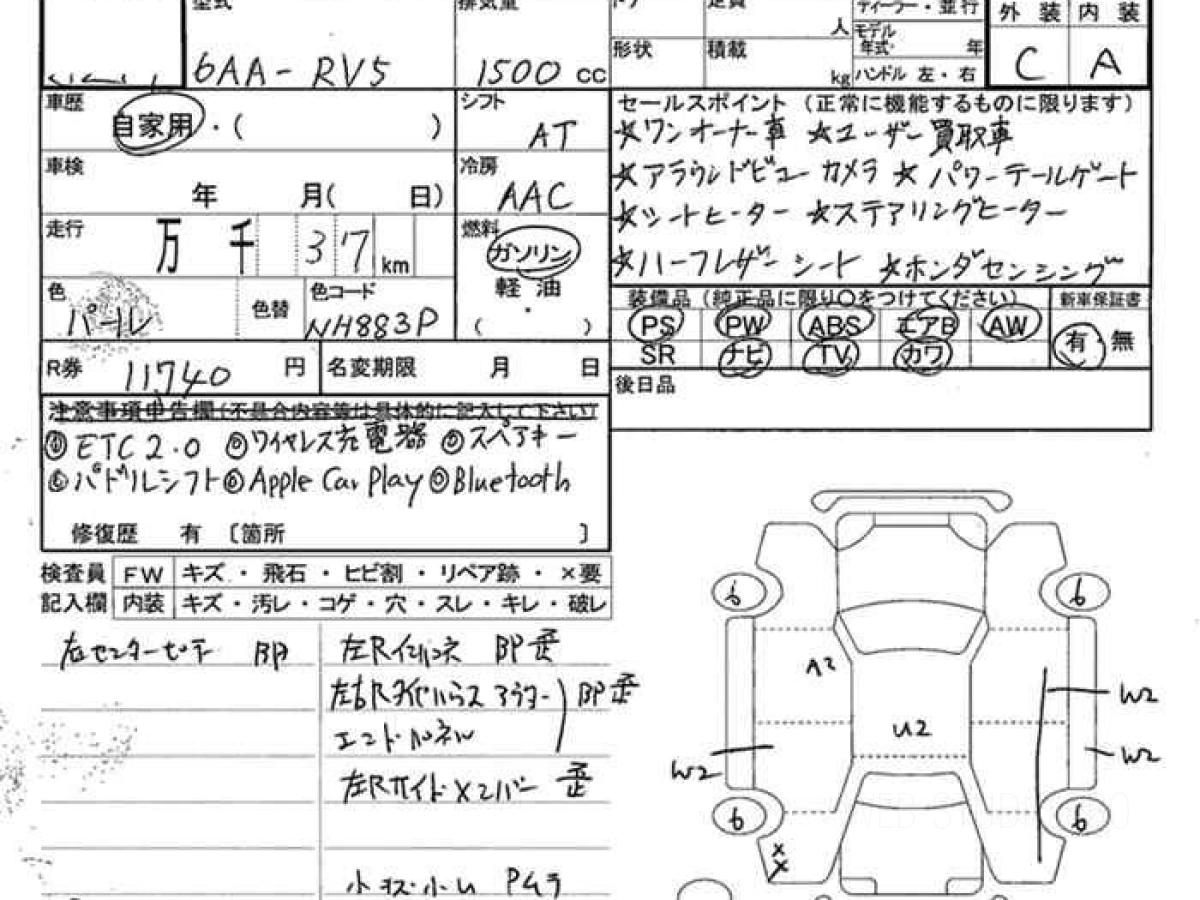 型式 排気量 定員 ディーラー・並行 外装 内装
人 モデル年式 年
形状 積載 kg ハンドル 左・右
6AA-RV5 1500 cc C A
車歴 自家用・( )
シフト AT
セールスポイント (正常に機能するものに限ります)
☆ワンオーナー車 ☆ユーザー買取車
☆アラウンドビューカメラ ☆パワーテールゲート
☆シートヒーター ☆ステアリングヒーター
☆ハーフレザーシート ☆ホンダセンシング
車検 年 月( 日)
冷房 AAC
走行 万 千 37 km
燃料 ガソリン
軽・油
( )
色 パール 色替 色コード NH883P
装備品 (純正品に限り○をつけてください) 新車保証書
PS PW ABS エアB AW 有・無
SR ナビ TV カワ
R券 11,740 円 名変期限 月 日
後日品
注意事項申告欄(不具合内容等は具体的に記入して下さい)
◎ETC2.0 ◎ワイヤレス充電器 ◎スペアキー
◎パドルシフト ◎Apple Car Play ◎Bluetooth
修復歴 有 〔箇所 〕
検査員 FW キズ・飛石・ヒビ割・リペア跡・×要
記入欄 内装 キズ・汚レ・コゲ・穴・スレ・キレ・破レ
右センターピラー BP
左Rインパネ BP歪
左右R アウター BP歪
エンドパネル
左Rサイドメンバー 歪
小キズ・小凹 Pムラ
6 6
A2
W2
U2
W2
W2
6 6
X
X